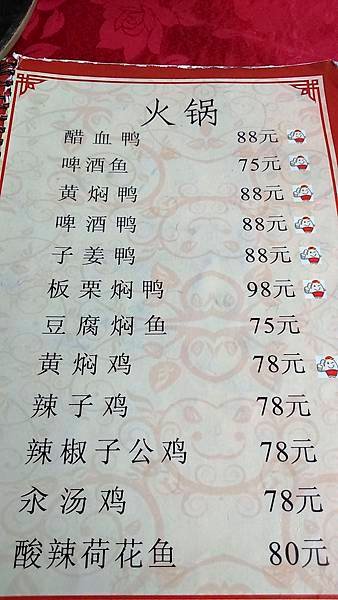 火锅
醋血鸭 88元
啤酒鱼 75元
黄焖鸭 88元
啤酒鸭 88元
子姜鸭 88元
板栗焖鸭 98元
豆腐焖鱼 75元
黄焖鸡 78元
辣子鸡 78元
辣椒子公鸡 78元
汆汤鸡 78元
酸辣荷花鱼 80元